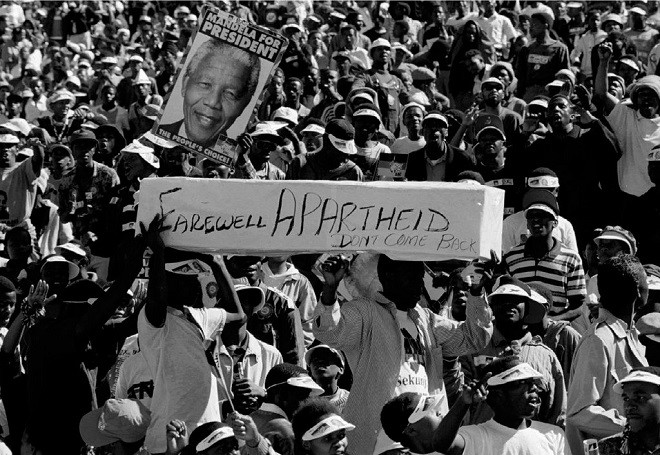 MANDELA FOR
PRESIDENT
THE PEOPLE'S CHOICE!
FAREWELL APARTHEID
DON'T COME BACK
Sekun